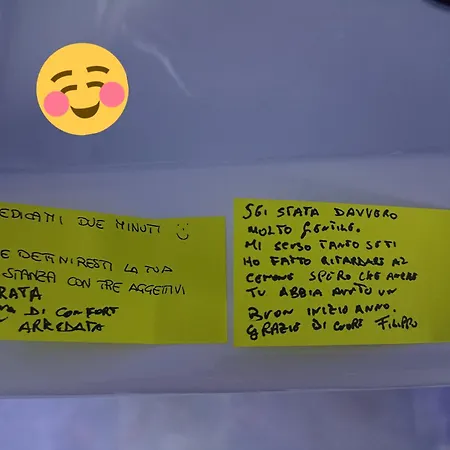 EDICATI DUE MINUTI
E DEFINIRESTI LA TUA
STANZA CON TRE AGGETTIVI
RATA
DI COMFORT
ARREDATA
SEI STATA DAVVERO
MOLTO GENTILE.
MI SCUSO TANTO SE TI
HO FATTO RITARDARE AL
CENONE SPERO CHE ANCHE
TU ABBIA AVUTO UN
BUON INIZIO ANNO.
GRAZIE DI CUORE FILIPPO